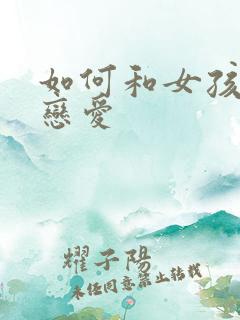 如何和女孩
戀愛
耀子陽
未經同意禁止轉載